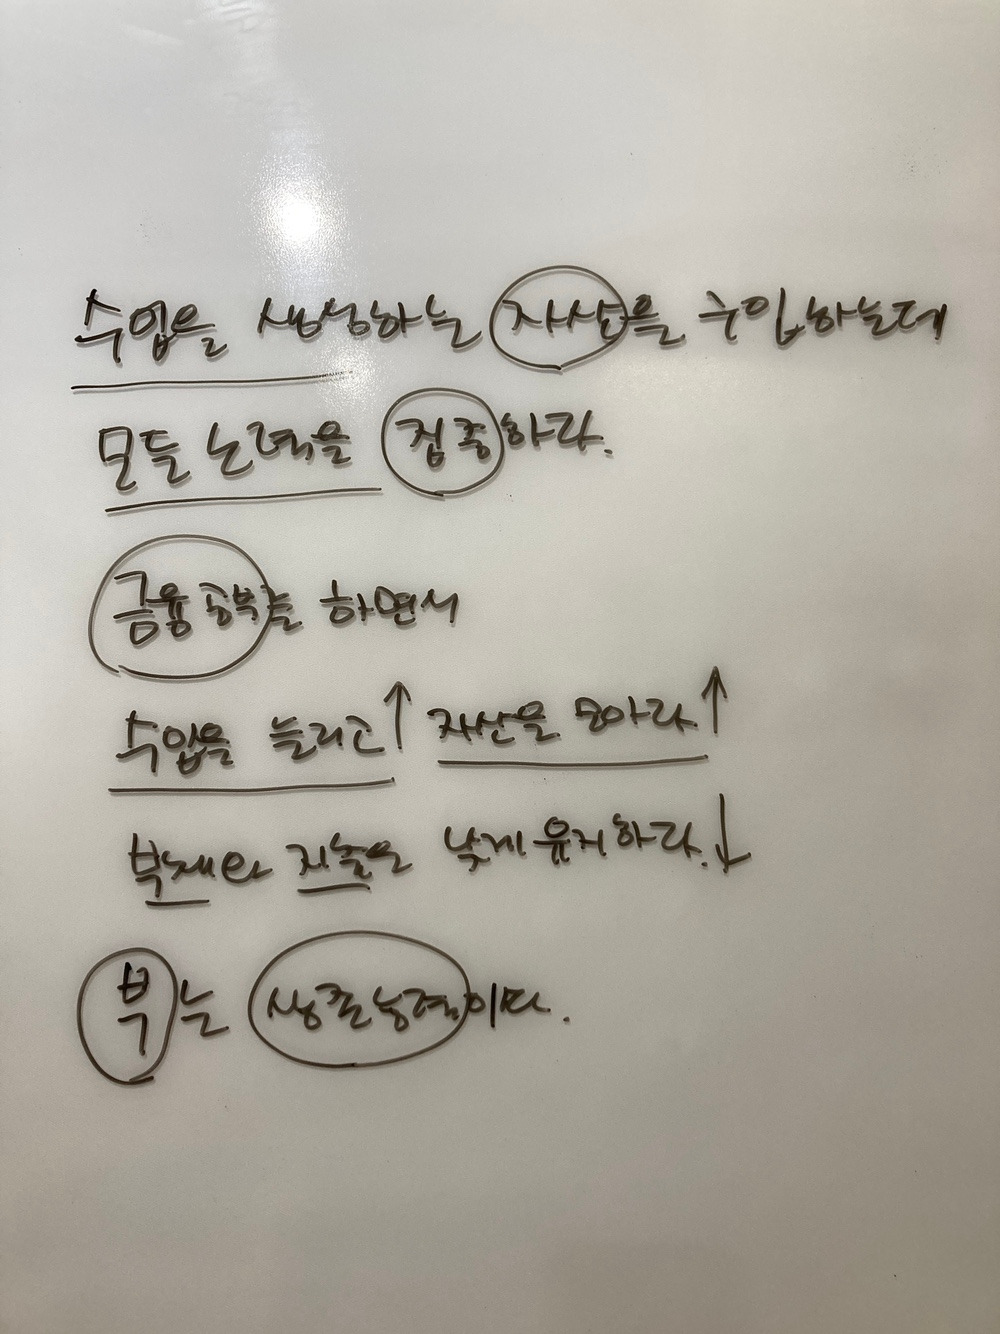 수입을 생성하는 자산을 구입하는데
모든 노력을 집중하라.
금융공부를 하면서
수입을 늘리고↑ 자산을 모아라↑
부채와 지출은 낮게 유지하라.↓
부는 생존능력이다.